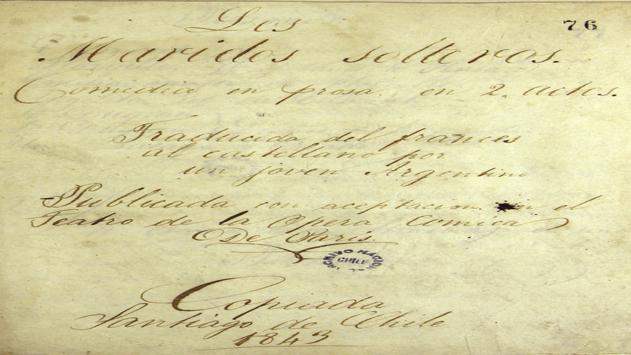 76
Los
Maridos solteros.
Comedia en prosa en 2. actos.
Traducida del frances
al castellano por
un joven Argentino
Publicada con aceptacion en el
Teatro de la Opera Comica
De Paris
ARCHIVO NACIONAL
CHILE
Copiada
Santiago de Chile
1843